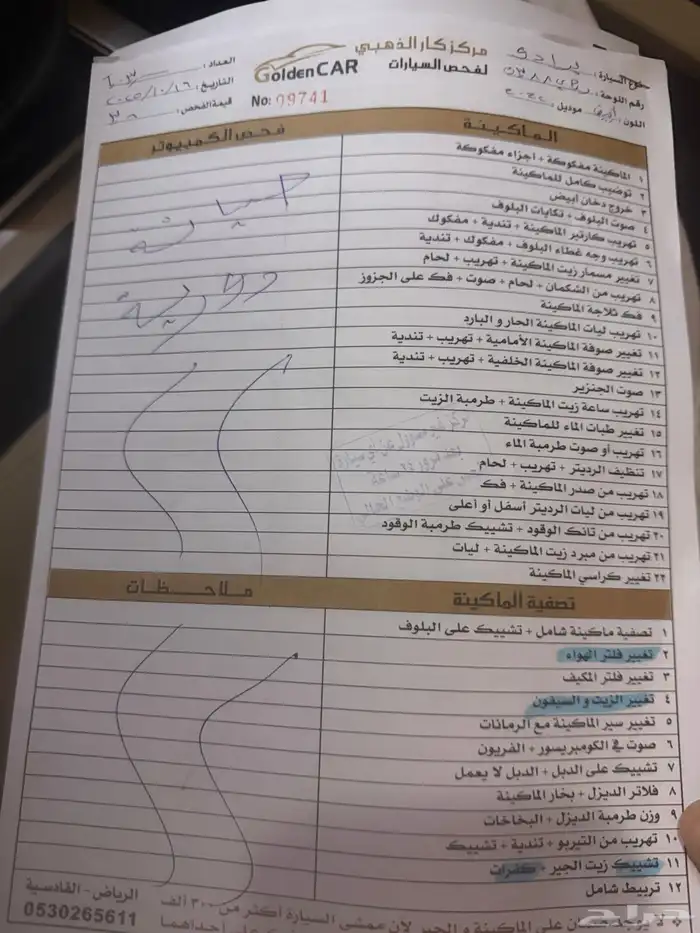 مركز كار الذهبي
لفحص السيارات
GoldenCAR
No: 09741
نوع السيارة:
رقم اللوحة:
اللون: موديل:
العداد:
التاريخ: ٢٠٢٥/١٠/١٦
قيمة الفحص:
الماكينة
فحص الكمبيوتر
١ الماكينة مفكوكة + أجزاء مفكوكة
٢ توضيب كامل للماكينة
٣ خروج دخان أبيض
٤ صوت البلوف + تكايات البلوف
٥ تهريب كارتير الماكينة + تندية + مفكوك
٦ تهريب وجه غطاء البلوف + مفكوك + تندية
٧ تغيير مسمار زيت الماكينة + تهريب + لحام
٨ تهريب من الشكمان + لحام + صوت + فك على الجزوز
٩ فك ثلاجة الماكينة
١٠ تهريب ليات الماكينة الحار و البارد
١١ تغيير صوفة الماكينة الأمامية + تهريب + تندية
١٢ تغيير صوفة الماكينة الخلفية + تهريب + تندية
١٣ صوت الجنزير
١٤ تهريب ساعة زيت الماكينة + طرمبة الزيت
١٥ تغيير طبات الماء للماكينة
١٦ تهريب أو صوت طرمبة الماء
١٧ تنظيف الرديتر + تهريب + لحام
١٨ تهريب من صدر الماكينة + فك
١٩ تهريب من ليات الرديتر أسفل أو أعلى
٢٠ تهريب من تانك الوقود + تشييك طرمبة الوقود
٢١ تهريب من مبرد زيت الماكينة + ليات
٢٢ تغيير كراسي الماكينة
صيانة
دورية
تصفية الماكينة
ملاحظات
١ تصفية ماكينة شامل + تشييك على البلوف
٢ تغيير فلتر الهواء
٣ تغيير فلتر المكيف
٤ تغيير الزيت و السيفون
٥ تغيير سير الماكينة مع الرمانات
٦ صوت في الكومبريسور + الفريون
٧ تشييك على الدبل + الدبل لا يعمل
٨ فلاتر الديزل + بخار الماكينة
٩ وزن طرمبة الديزل + البخاخات
١٠ تهريب من التيربو + تندية + تشييك
١١ تشييك زيت الجير + كفرات
١٢ تربيط شامل
الرياض - القادسية
0530265611
لا يوجد ضمان على الماكينة و الجير لان ممشى السيارة أكثر من ٣٠٠ ألف
حراج